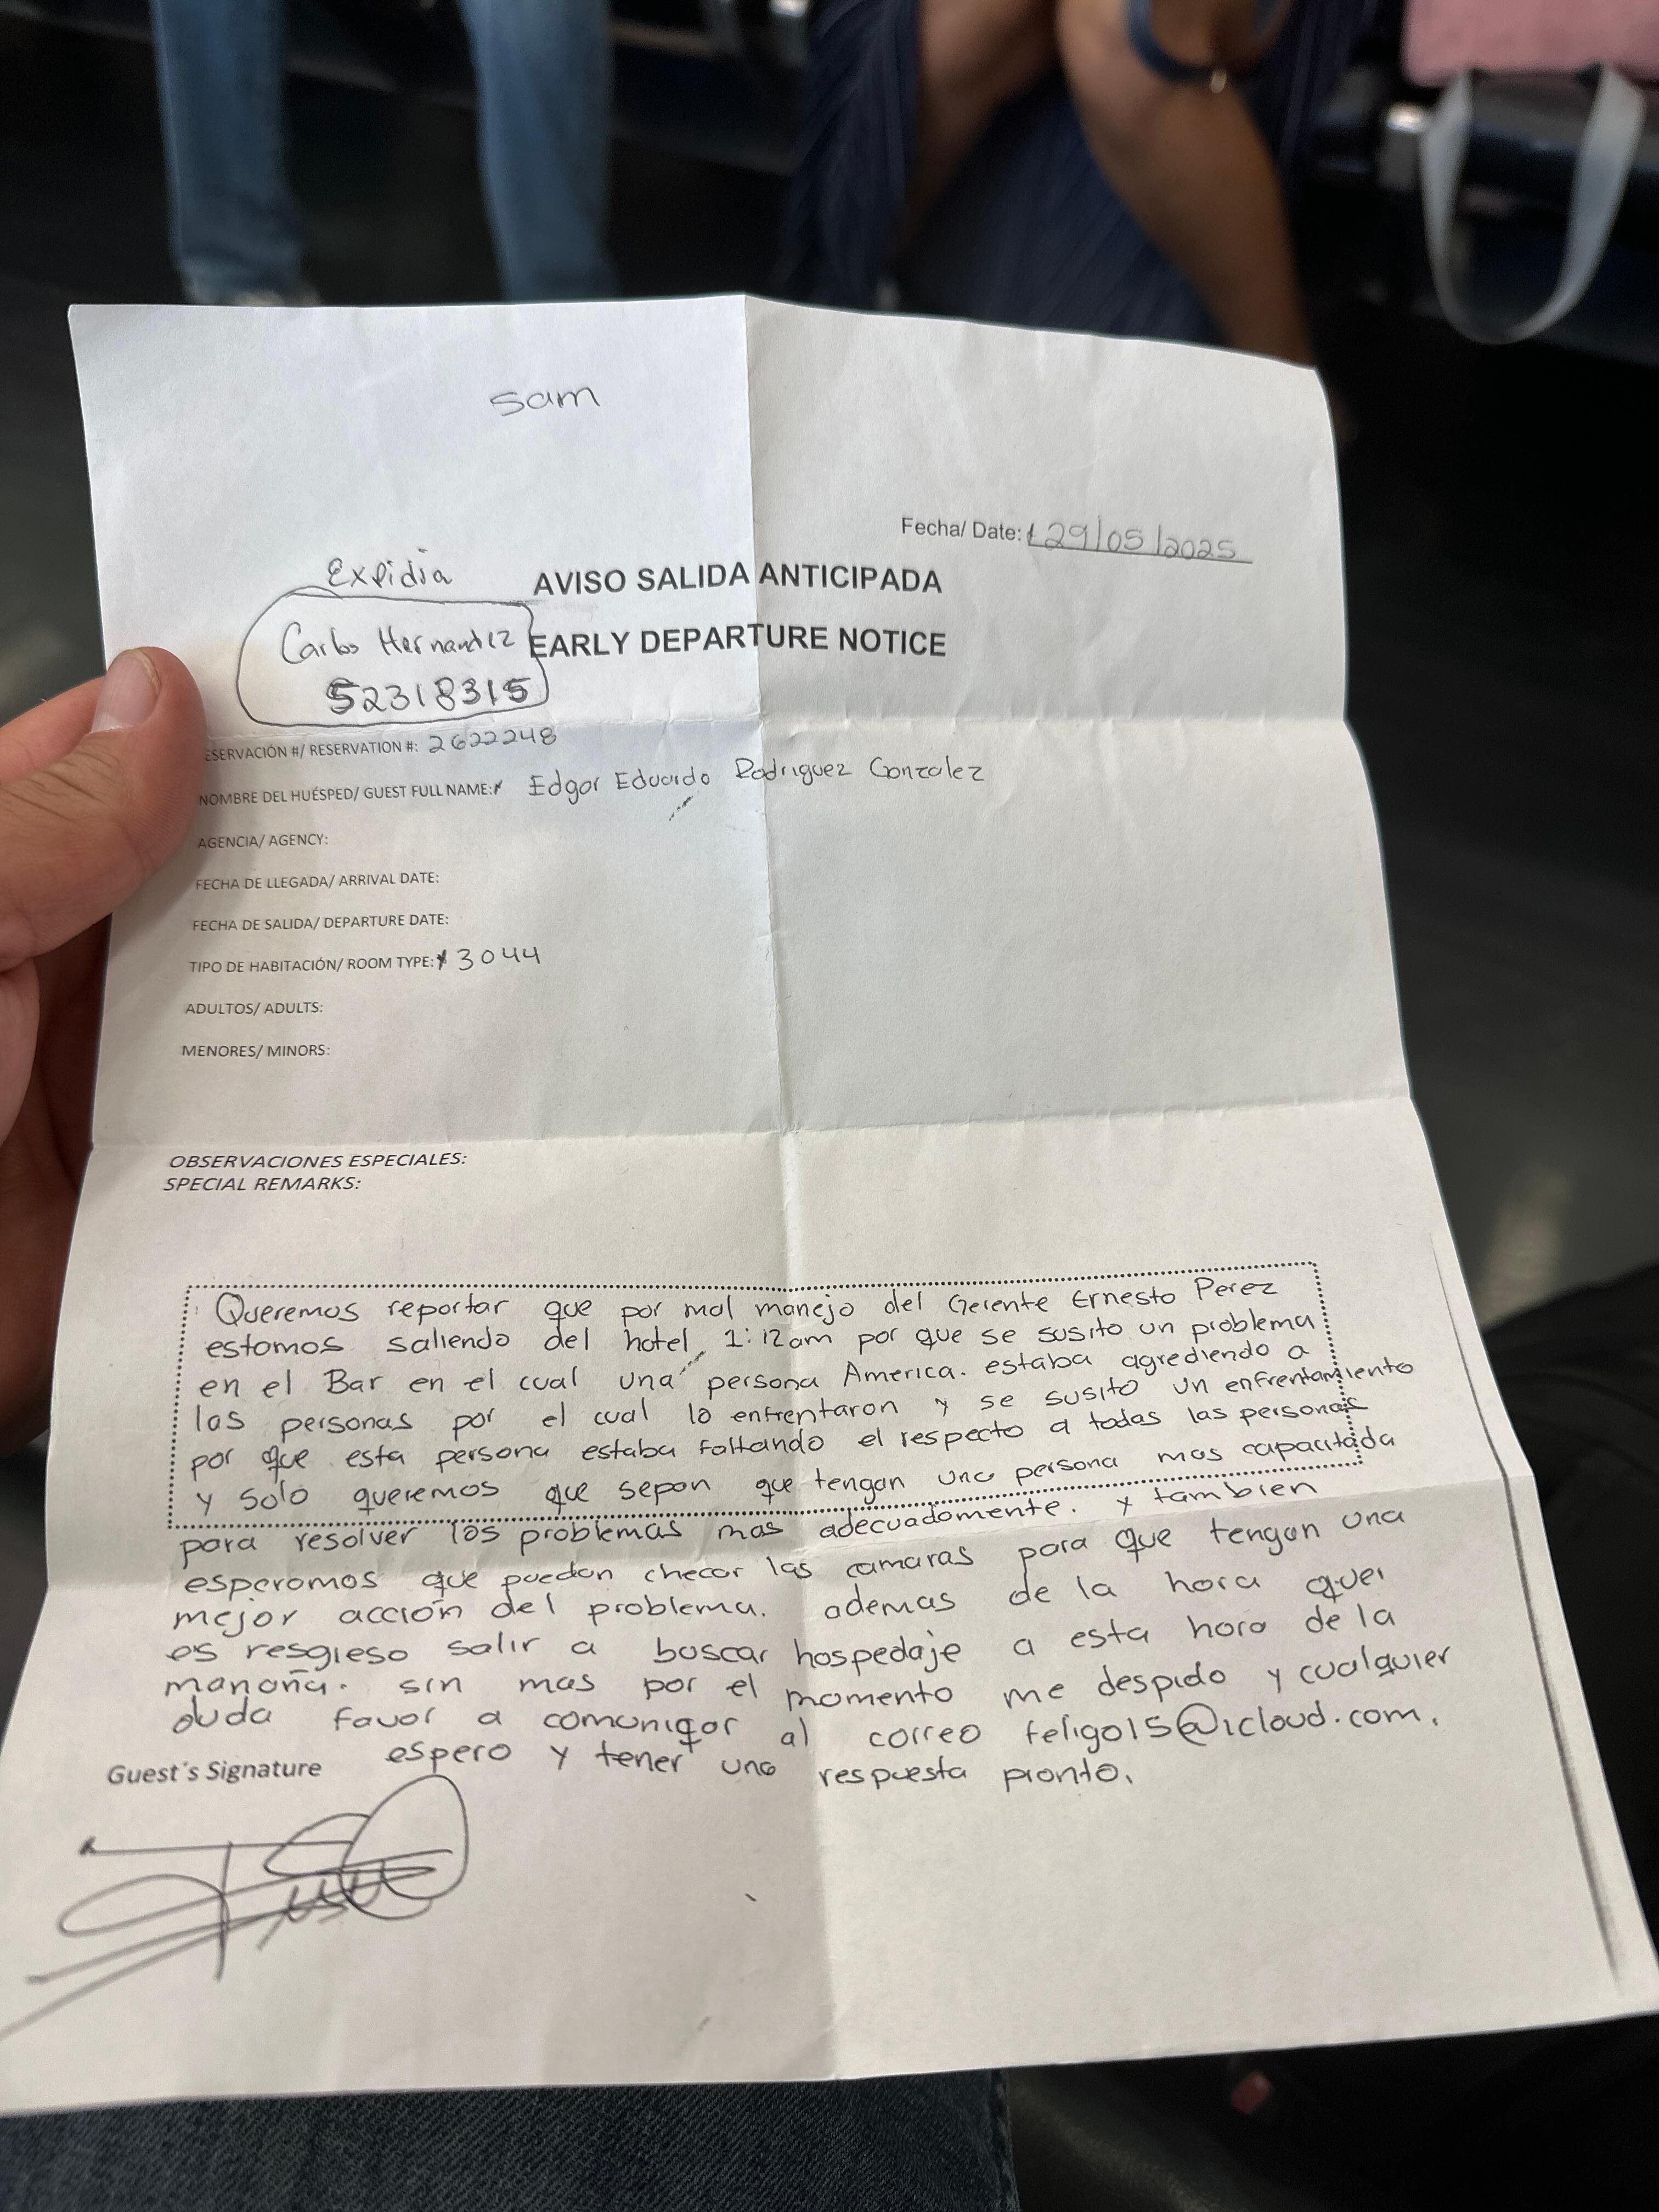 Sam
Fecha/ Date: 29/05/2025
Expidia
AVISO SALIDA ANTICIPADA
Carlos Hernandez
EARLY DEPARTURE NOTICE
52318315
ESERVACIÓN #/ RESERVATION #: 2622248
NOMBRE DEL HUÉSPED/ GUEST FULL NAME: Edgar Eduardo Rodriguez Gonzalez
AGENCIA/ AGENCY:
FECHA DE LLEGADA/ ARRIVAL DATE:
FECHA DE SALIDA/ DEPARTURE DATE:
TIPO DE HABITACIÓN/ ROOM TYPE: 3044
ADULTOS/ ADULTS:
MENORES/ MINORS:
OBSERVACIONES ESPECIALES:
SPECIAL REMARKS:
Queremos reportar que por mal manejo del Gerente Ernesto Perez
estamos saliendo del hotel 1:12am por que se susito un problema
en el Bar en el cual una persona America. estaba agrediendo a
las personas por el cual lo enfrentaron y se susito un enfrentamiento
por que esta persona estaba faltando el respecto a todas las personas
y solo queremos que sepan que tengan una persona mas capacitada
para resolver los problemas mas adecuadamente. y tambien
esperamos que puedan checar las camaras para que tengan una
mejor acción del problema. ademas de la hora que
es resgieso salir a buscar hospedaje a esta hora de la
manaña. sin mas por el momento me despido y cualquier
duda favor a comuniqar al correo feligo15@icloud.com.
espero y tener una respuesta pronto.
Guest´s Signature